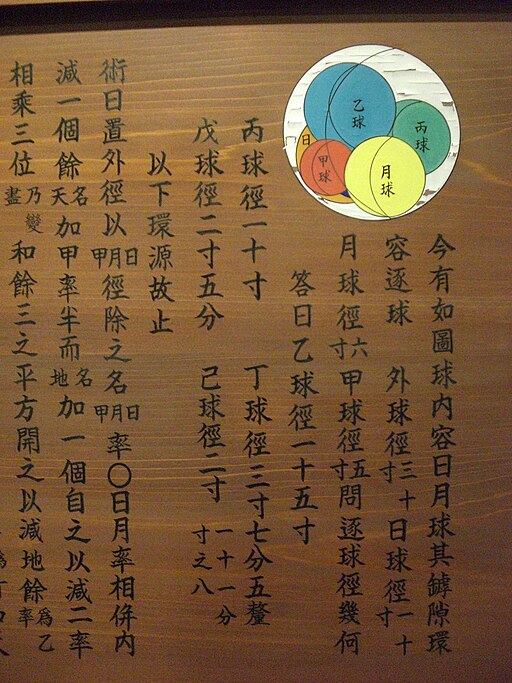 乙球
丙球
日
甲球
月球
今有如圖球内容日月球其罅隙環
容逐球　外球徑三十寸日球徑一十寸
月球徑六寸甲球徑五寸問逐球徑幾何
答曰乙球徑一十五寸
丙球徑一十寸　丁球徑三寸七分五釐
戊球徑二寸五分　己球徑二寸一十一分寸之八
以下環源故止
術曰置外徑以日月甲徑除之名日月甲率〇日月率相併内
減一個餘名天加甲率半而名地加一個自之以減二率
相乘三位乃變盡和餘三之平方開之以減地餘爲乙率